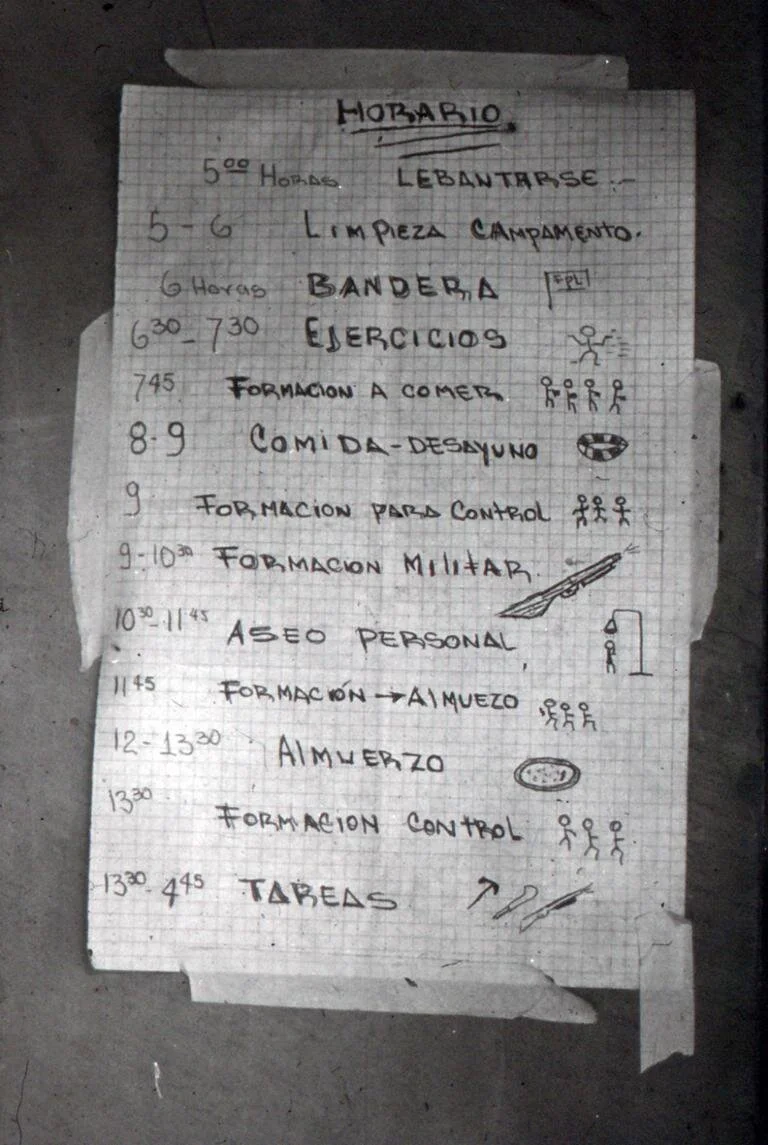 HORARIO
5⁰⁰ Horas LEBANTARSE.-
5-6 LIMPIEZA CAMPAMENTO.
6 Horas BANDERA FPL
6³⁰-7³⁰ EJERCICIOS
7⁴⁵ FORMACION A COMER
8-9 COMIDA-DESAYUNO
9 FORMACION PARA CONTROL
9-10³⁰ FORMACION MILITAR
10³⁰-11⁴⁵ ASEO PERSONAL
11⁴⁵ FORMACIÓN → ALMUEZO
12-13³⁰ ALMUERZO
13³⁰ FORMACION CONTROL
13³⁰-4⁴⁵ TAREAS